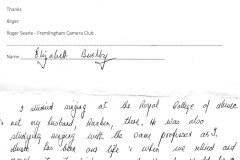 Thanks
Roger
Roger Searle - Framlingham Camera Club
Name Elizabeth Bushby
I studied singing at the Royal College of Music
met my husband, , there. He was also
studying singing with the same professor as I,
music has been our life & when we retired and